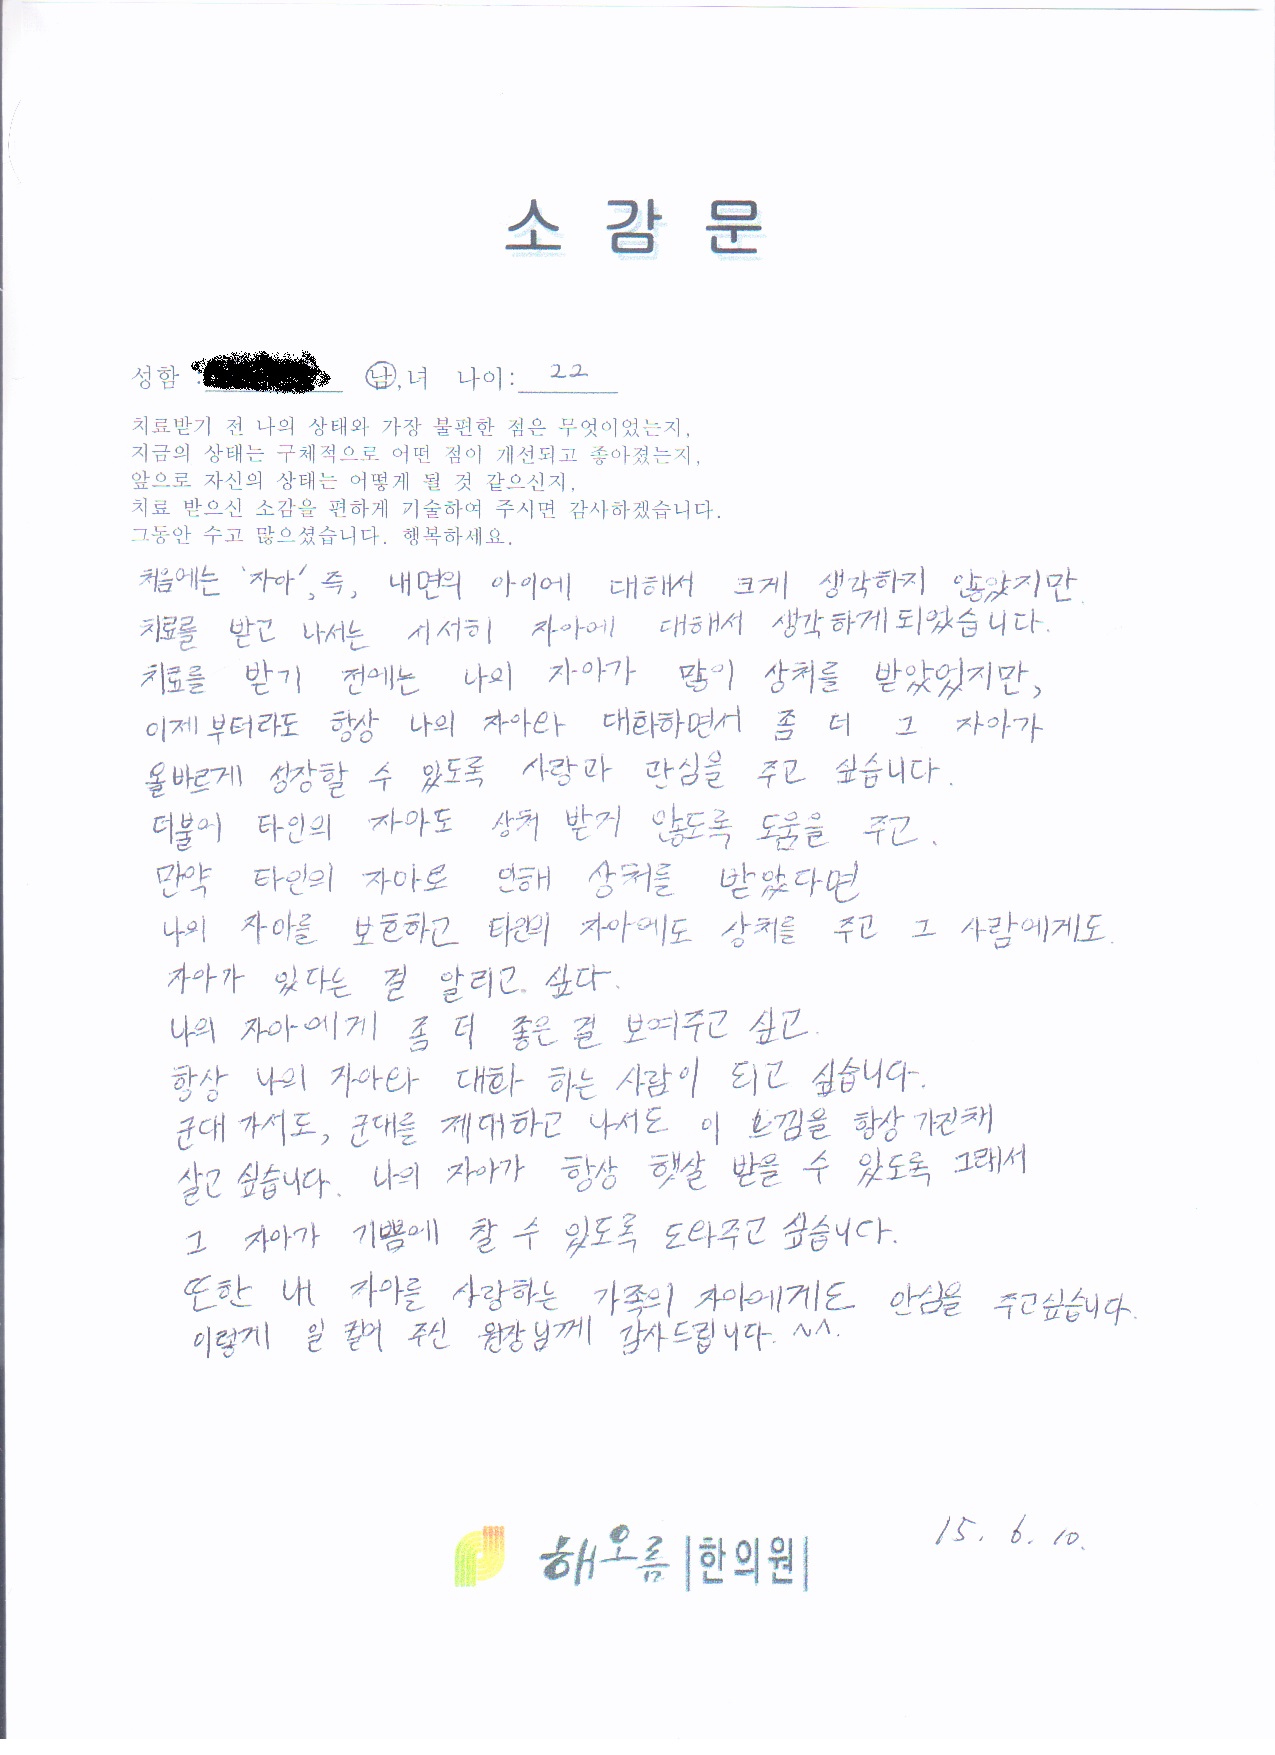 소 감 문
성함 : 남,녀 나이: 22
치료받기 전 나의 상태와 가장 불편한 점은 무엇이었는지,
지금의 상태는 구체적으로 어떤 점이 개선되고 좋아졌는지,
앞으로 자신의 상태는 어떻게 될 것 같으신지,
치료 받으신 소감을 편하게 기술하여 주시면 감사하겠습니다.
그동안 수고 많으셨습니다. 행복하세요.
처음에는 '자아', 즉, 내면의 아이에 대해서 크게 생각하지 않았지만
치료를 받고 나서는 서서히 자아에 대해서 생각하게되었습니다.
치료를 받기 전에는 나의 자아가 많이 상처를 받았었지만,
이제부터라도 항상 나의 자아와 대화하면서 좀 더 그 자아가
올바르게 성장할 수 있도록 사랑과 관심을 주고 싶습니다.
더불어 타인의 자아도 상처 받기 않도록 도움을 주고.
만약 타인의 자아로 인해 상처를 받았다면
나의 자아를 보호하고 타인의 자아에도 상처를 주고 그 사람에게도
자아가 있다는 걸 알리고. 싶다.
나의 자아에게 좀 더 좋은 걸 보여주고 싶고.
항상 나의 자아와 대화 하는 사람이 되고 싶습니다.
군대 가서도, 군대를 제대하고 나서도 이 느낌을 항상 가진채
살고 싶습니다. 나의 자아가 항상 햇살 받을 수 있도록 그래서
그 자아가 기쁨에 찰 수 있도록 도와주고 싶습니다.
또한 내 자아를 사랑하는 가족의 자아에게도 안심을 주고싶습니다.
이렇게 일 주신 원장님께 감사드립니다. ^^.
15. 6. 10.
해오름 한의원